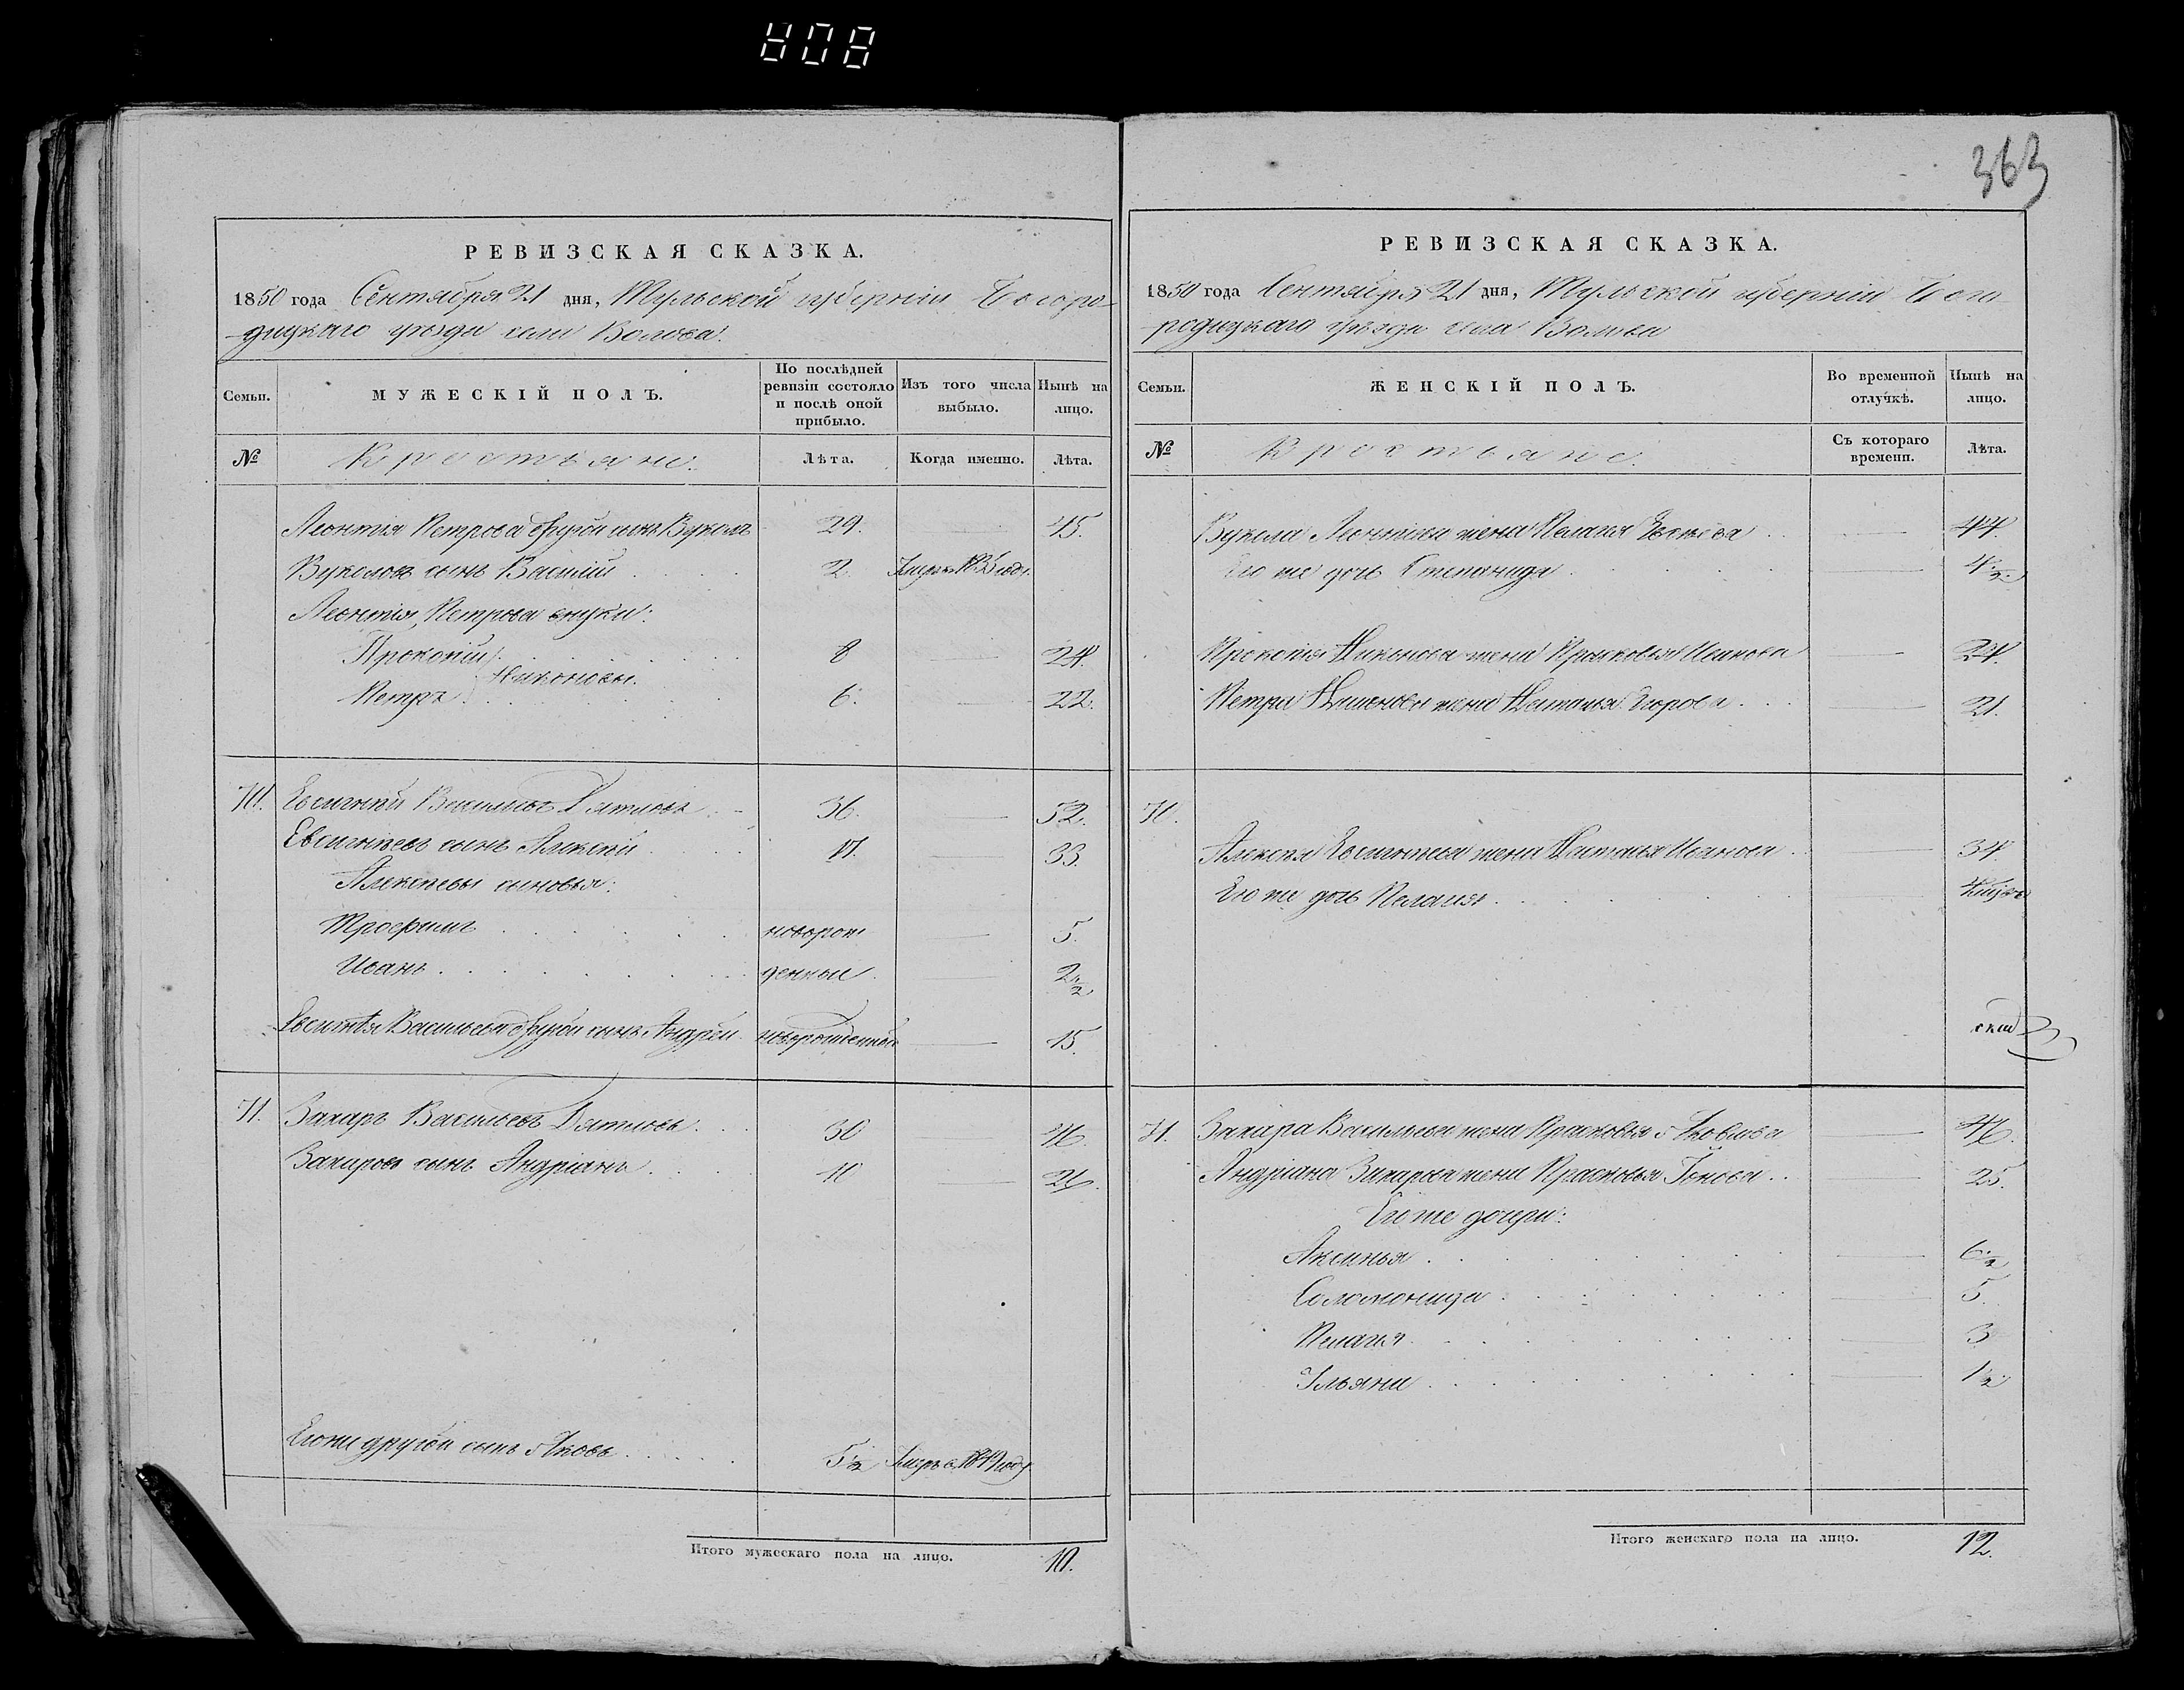 808
363
РЕВИЗСКАЯ СКАЗКА.
1850 года Сентября 21 дня, Тульской губерніи Богоро-
-дицкаго уѣзда села Волова.
Семьи.
МУЖЕСКІЙ ПОЛЪ.
По послѣдней ревизіи состояло и послѣ оной прибыло.
Изъ того числа выбыло.
Нынѣ на лицо.
№
Крестьяне.
Лѣта.
Когда именно.
Лѣта.
Леонтія Петрова другой сынъ Вуколъ 29. 45.
Вуколовъ сынъ Василій 2 году
Леонтія Петрова внуки:
Прокофій 8 24.
Никоновы.
Петръ 6. 22.
70. Евсигнѣй Васильевъ Дятловъ 36. 52.
Евсигнѣевъ сынъ Алексѣй 17. 33.
Алексѣевы сыновья:
Трофимъ новорож 5.
Иванъ денные 2 1/2
Евсигнѣя Васильева другой сынъ Андрей новорожденной 15.
71. Захаръ Васильевъ Дятловъ 30 46.
Захаровъ сынъ Андріянъ 10 26.
Егоже другой сынъ Яковъ 5 1/2 году
Итого мужескаго пола на лицо. 10.
РЕВИЗСКАЯ СКАЗКА.
1850 года Сентября 21 дня, Тульской губерніи Бого-
-родицкаго уѣзда села Волова
Семьи.
ЖЕНСКІЙ ПОЛЪ.
Во временной отлучкѣ.
Нынѣ на лицо.
№
Крестьяне.
Съ котораго времени.
Лѣта.
Вукола Леонтьева жена Пелагія 44.
Его же дочь Степанида 4 1/2
Прокофья Никонова жена Прасковья Иванова 24.
Петра Никонова жена Наталья Егорова 21.
70.
Алексѣя Евсигнѣева жена Наталья Иванова 34.
Его же дочь Пелагія
71. Захара Васильева жена Прасковья Яковлева 46.
Андріана Захарова жена Прасковья 25.
Его же дочери:
Аксинья 6 1/2
Соломонида 5.
Пелагія 3
Ульяна 1 1/2
Итого женскаго пола на лицо. 12.